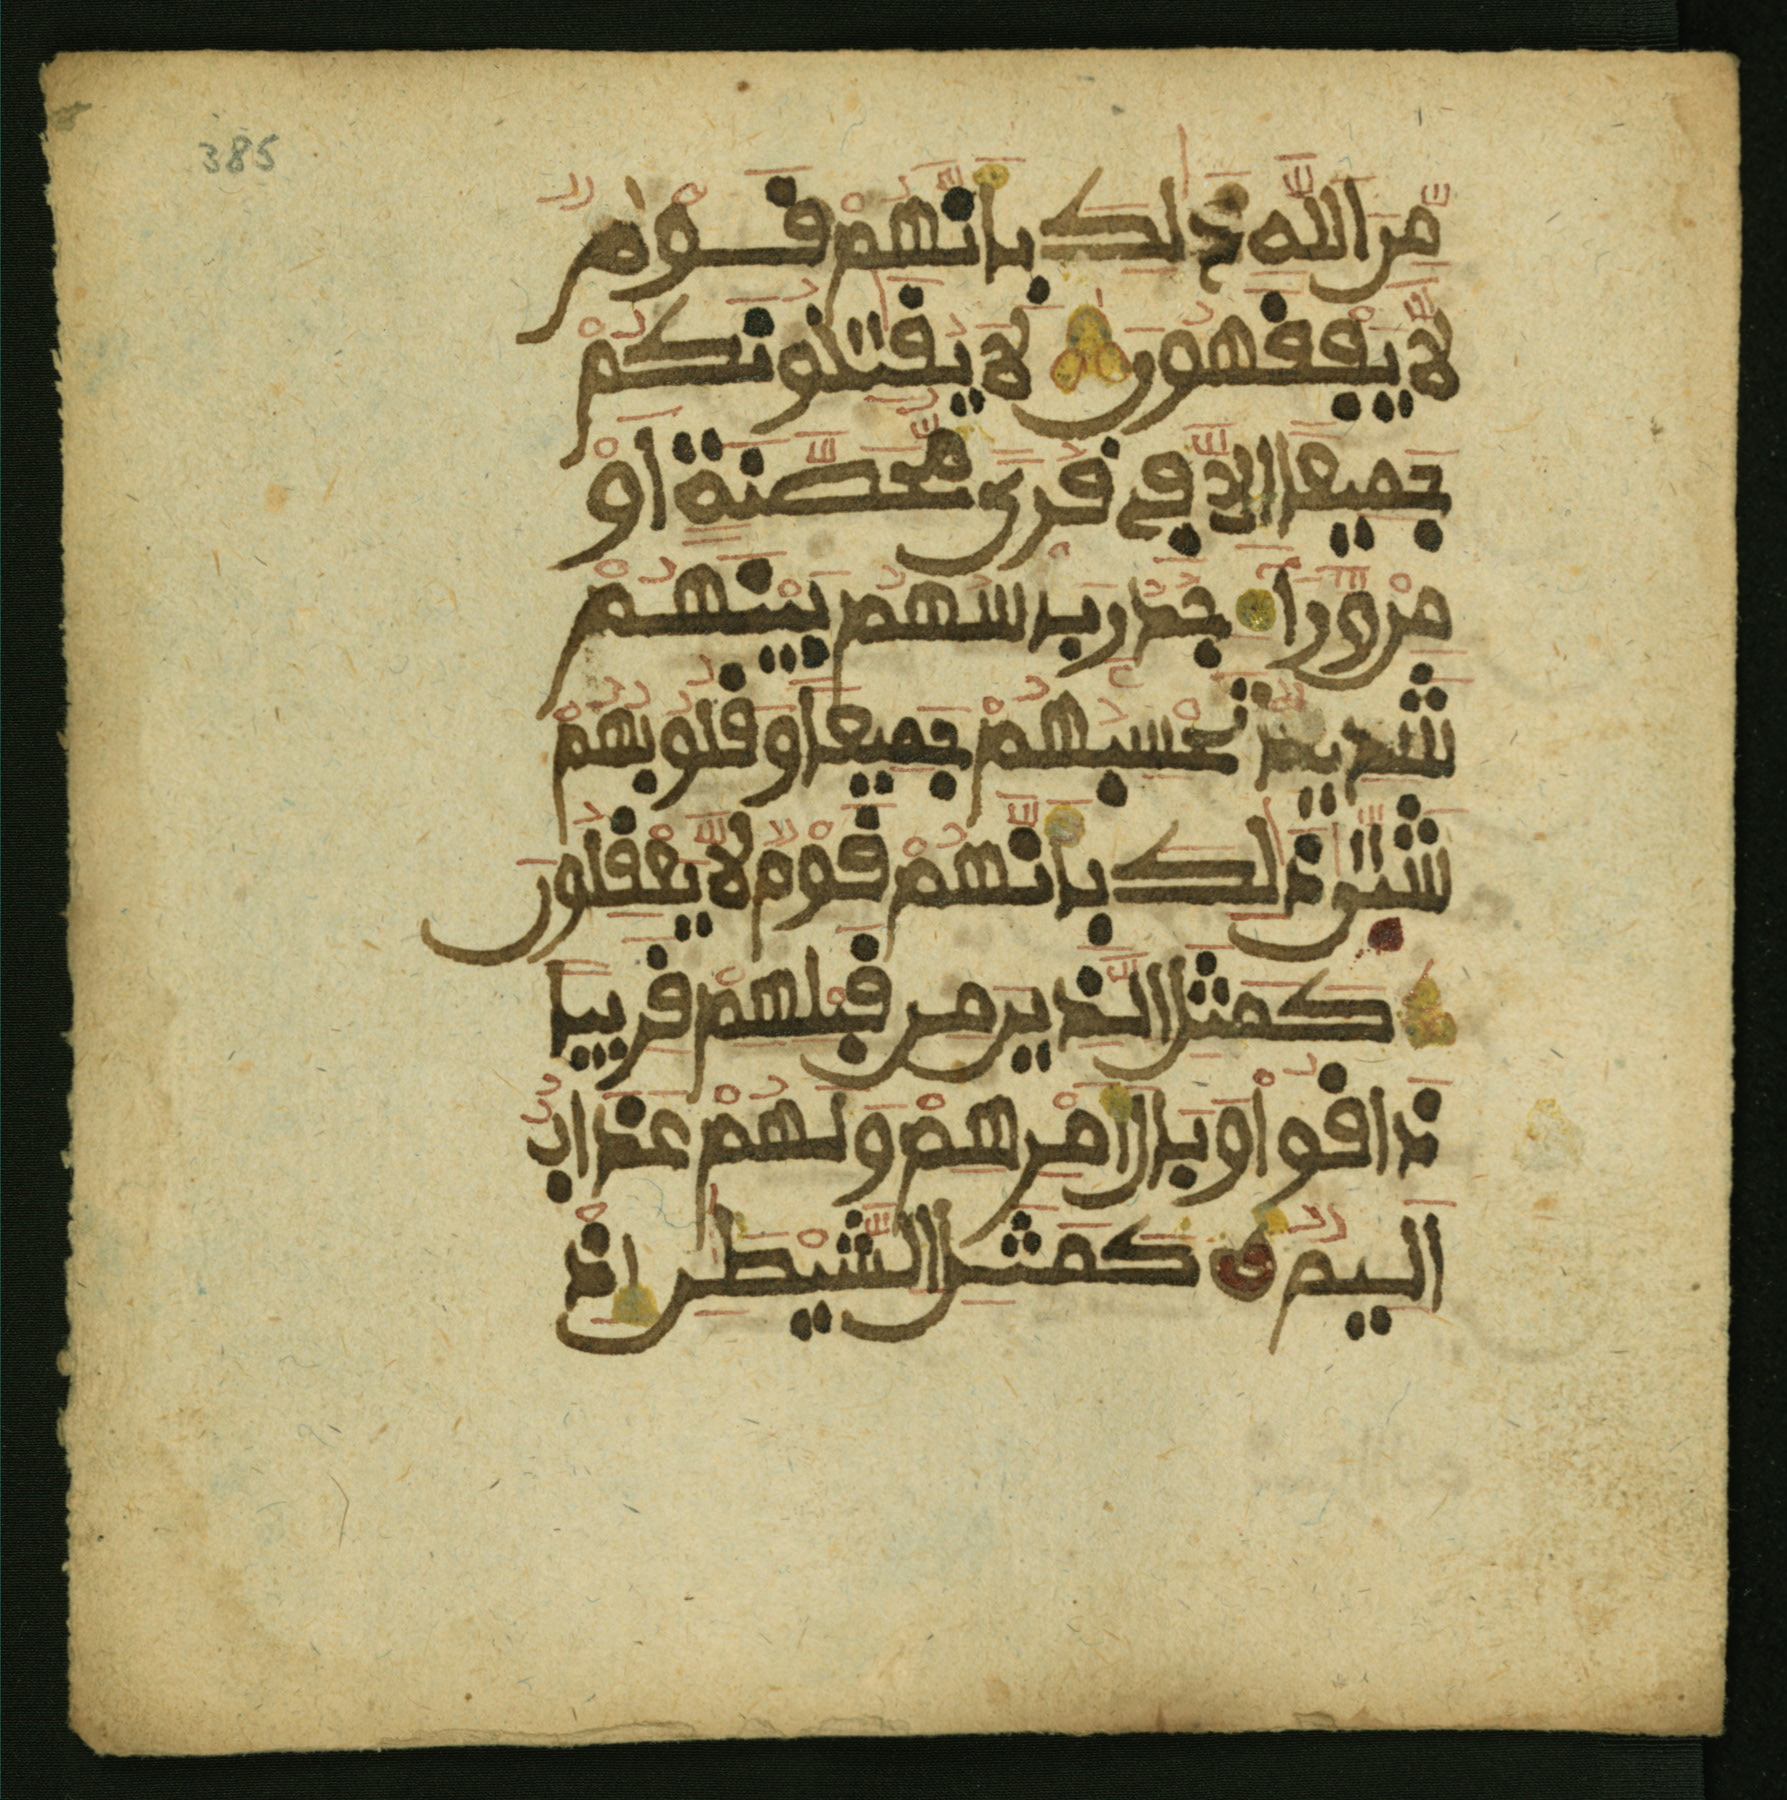 385
مِّنَ اللَّهِ ذَٰلِكَ بِأَنَّهُمْ قَوْمٌ
لَّا يَفْقَهُونَ لَا يُقَٰتِلُونَكُمْ
جَمِيعًا إِلَّا فِي قُرًى مُّحَصَّنَةٍ أَوْ
مِنْ وَّرَآءِ جُدُرٍ بَأْسُهُم بَيْنَهُمْ
شَدِيدٌ تَحْسِبُهُمْ جَمِيعًا وَقُلُوبُهُمْ
شَتَّىٰ ذَٰلِكَ بِأَنَّهُمْ قَوْمٌ لَّا يَعْقِلُونَ
كَمَثَلِ الَّذِينَ مِن قَبْلِهِمْ قَرِيبًا
ذَاقُوا وَبَالَ أَمْرِهِمْ وَلَهُمْ عَذَابٌ
أَلِيمٌ كَمَثَلِ الشَّيْطَٰنِ إِذْ